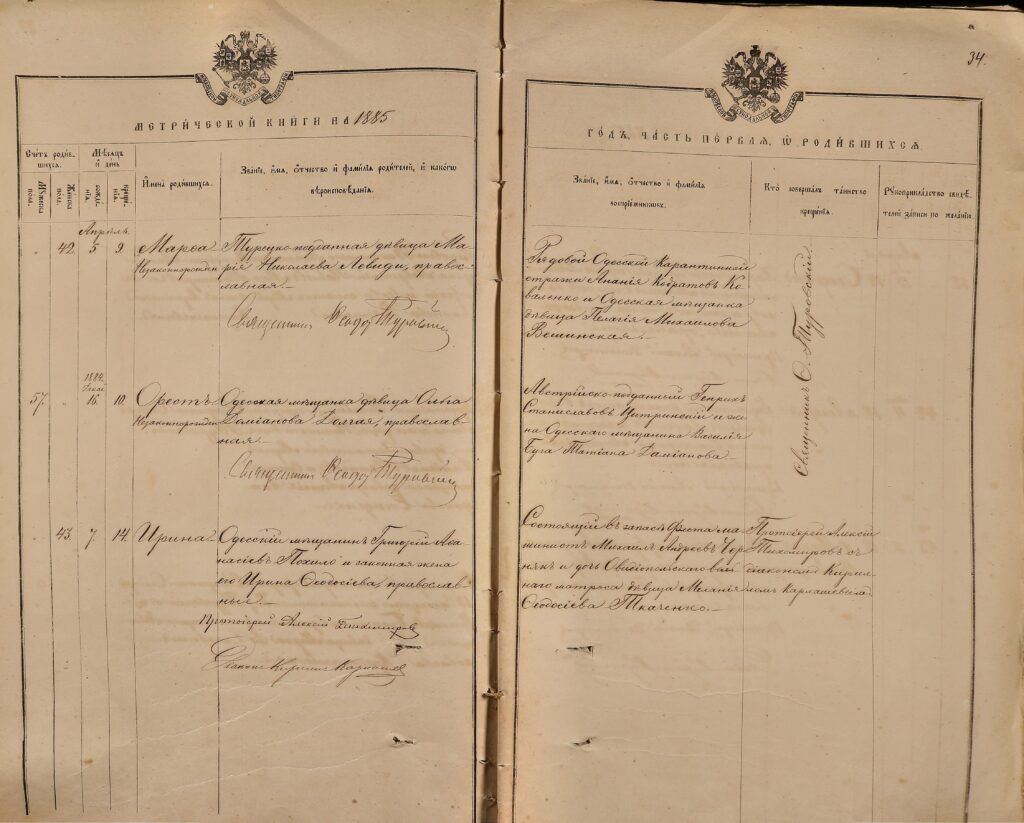 34.
МЕТРИ́ЧЕСКОЙ КНИ́ГИ НА 1885
ГО́ДЪ, ЧА́СТЬ ПЕ́РВАЯ, Ѡ РОДИ́ВШИХСЯ.
Счетъ роди́в-
шихся.
Мѣсяцъ
и день
Имена родившихся.
Званіе, имя, отчество и фамилія родителей, и какого
вѣроисповѣданія.
Званіе, имя, отчество и фамилія
воспріемниковъ.
Кто совершалъ таинство
крещенія.
Рукоприкладство свидѣ-
телей записи по желанію.
Мужеска
пола.
Женска
пола.
рожде-
нія.
креще-
нія.
Апрѣль.
42. 5 9.
Марѳа
Незаконнорожден
Турецко-подданная дѣвица Ма-
рія Николаева Левиди, право-
славная.
Священникъ Ѳеодоръ Туровскій
Рядовой Одесской Карантинной
стражи Ананія Кодратовъ Ко-
валенко и Одесская мѣщанка
дѣвица Пелагія Михаилова
Вешинская.
Священникъ Ѳ. Туровскій
1884.
57. " 16. 10.
Орестъ
Незаконнорожден
Одесская мѣщанка дѣвица Ольга
Даміанова Долгая, православ-
ная.
Священникъ Ѳеодоръ Туровскій
Австрійско-подданный Генрихъ
Станиславовъ Цитринскій и же-
на Одесскаго мѣщанина Василія
Буга Татіана Даміанова.
43. 7. 14.
Ирина
Одесскій мѣщанинъ Григорій Аѳа-
насіевъ Похило и законная жена
его Ирина Ѳеодосіева, православ-
ные.
Протоіерей Алексій Тихомировъ
Діаконъ Кириллъ
Состоящій въ запасѣ флота ма-
шинистъ Михаилъ Андреевъ Чер-
някъ и дочь Овидіопольскаго
наго матроса дѣвица Меланія
Ѳеодосіева Ткаченко.
Протоіерей Алексій
Тихомировъ съ
діакономъ Кирил-
ломъ